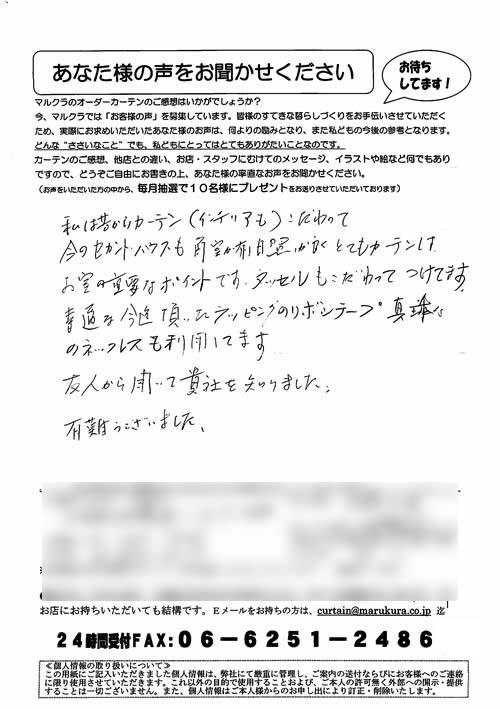 あなた様の声をお聞かせください
お待ち
してます！
マルクラのオーダーカーテンのご感想はいかがでしょうか？
今、マルクラでは「お客様の声」を募集しています。皆様のすてきな暮らしづくりをお手伝いさせていただく
ため、実際にお求めいただいたあなた様のお声は、何よりの励みとなり、また私どもの今後の参考となります。
どんな“ささいなこと”でも、私どもにとってはとてもありがたいことなのです。
カーテンのご感想、他店との違い、お店・スタッフにむけてのメッセージ、イラストや絵など何でもあり
ますので、どうぞご自由にお書きの上、あなた様の率直なお声をお聞かせください。
（お声をいただいた方の中から、毎月抽選で１０名様にプレゼントをお送りさせていただいております）
私は昔からカーテン（インテリアも）こだわって
今のセカンドハウスも とてもカーテンは
お室の重要なポイントです。タッセルもこだわってつけてます。
普通な 頂いたラッピングのリボンテープ 真珠
のネックレスも利用してます
友人から聞いて貴社を知りました。
有難うございました。
お店にお持ちいただいても結構です。Ｅメールをお持ちの方は、curtain@marukura.co.jp 迄
２４時間受付ＦＡＸ：０６－６２５１－２４８６
≪個人情報の取り扱いについて≫
この用紙にご記入いただきました個人情報は、弊社にて厳重に管理し、ご案内の送付ならびにお客様へのご連絡
に限り使用させていただきます。これ以外の目的で使用することおよび、ご本人の許可無く外部への開示・提供
することは一切ございません。また、個人情報はご本人様からのお申し出により訂正・削除いたします。